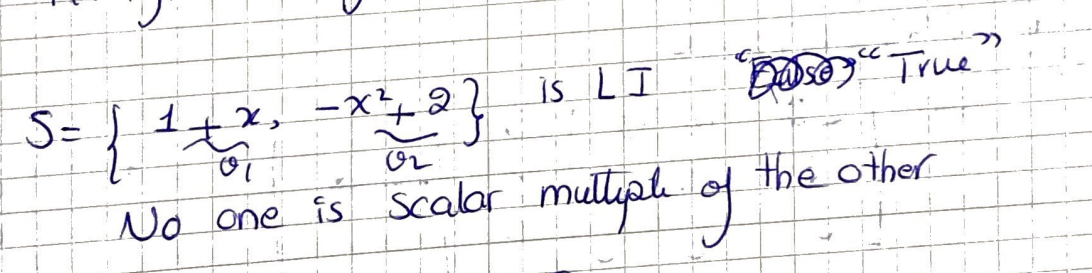 S = { 1 + x, -x² + 2 } is LI "True"
v₁ v₂
No one is scalar multiple of the other